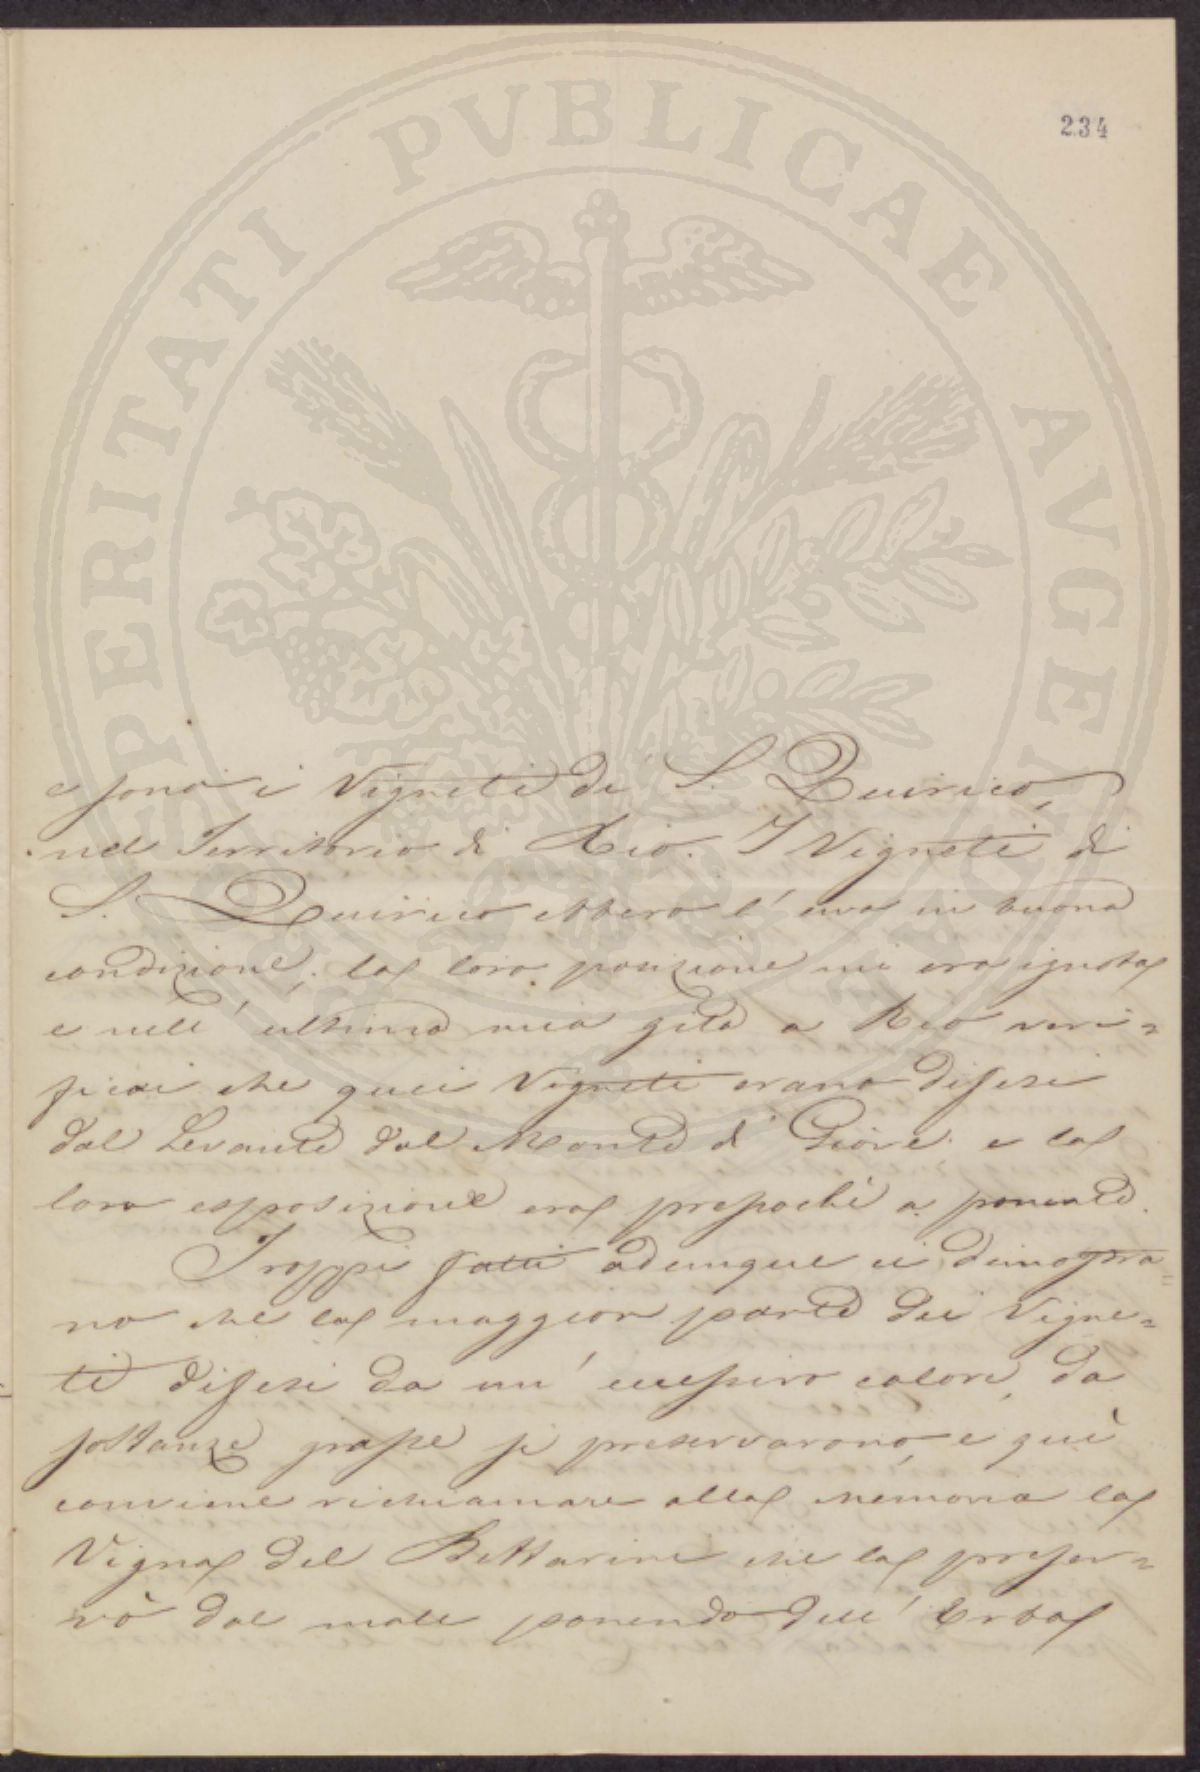 PROSPERITATI PVBLICAE AVGENDAE
234
e sono i Vigneti di S. Quirico,
nel Territorio di Rio. I Vigneti di
S. Quirico ebbero l'uva in buona
condizione; la loro posizione mi era ignota
e nell'ultima mia gita a Rio veri=
ficai che quei Vigneti erano difesi
dal Levante dal Monte di Giove e la
loro esposizione era pressochè a ponente.
Troppi fatti adunque ci dimostra=
no che la maggior parte dei Vigne=
ti difesi da un' calore, da
sostanze grasse si preservarono, e quì
conviene richiamare alla memoria la
Vigna del Bettarini che la preser=
vò dal male ponendo dell'Erba